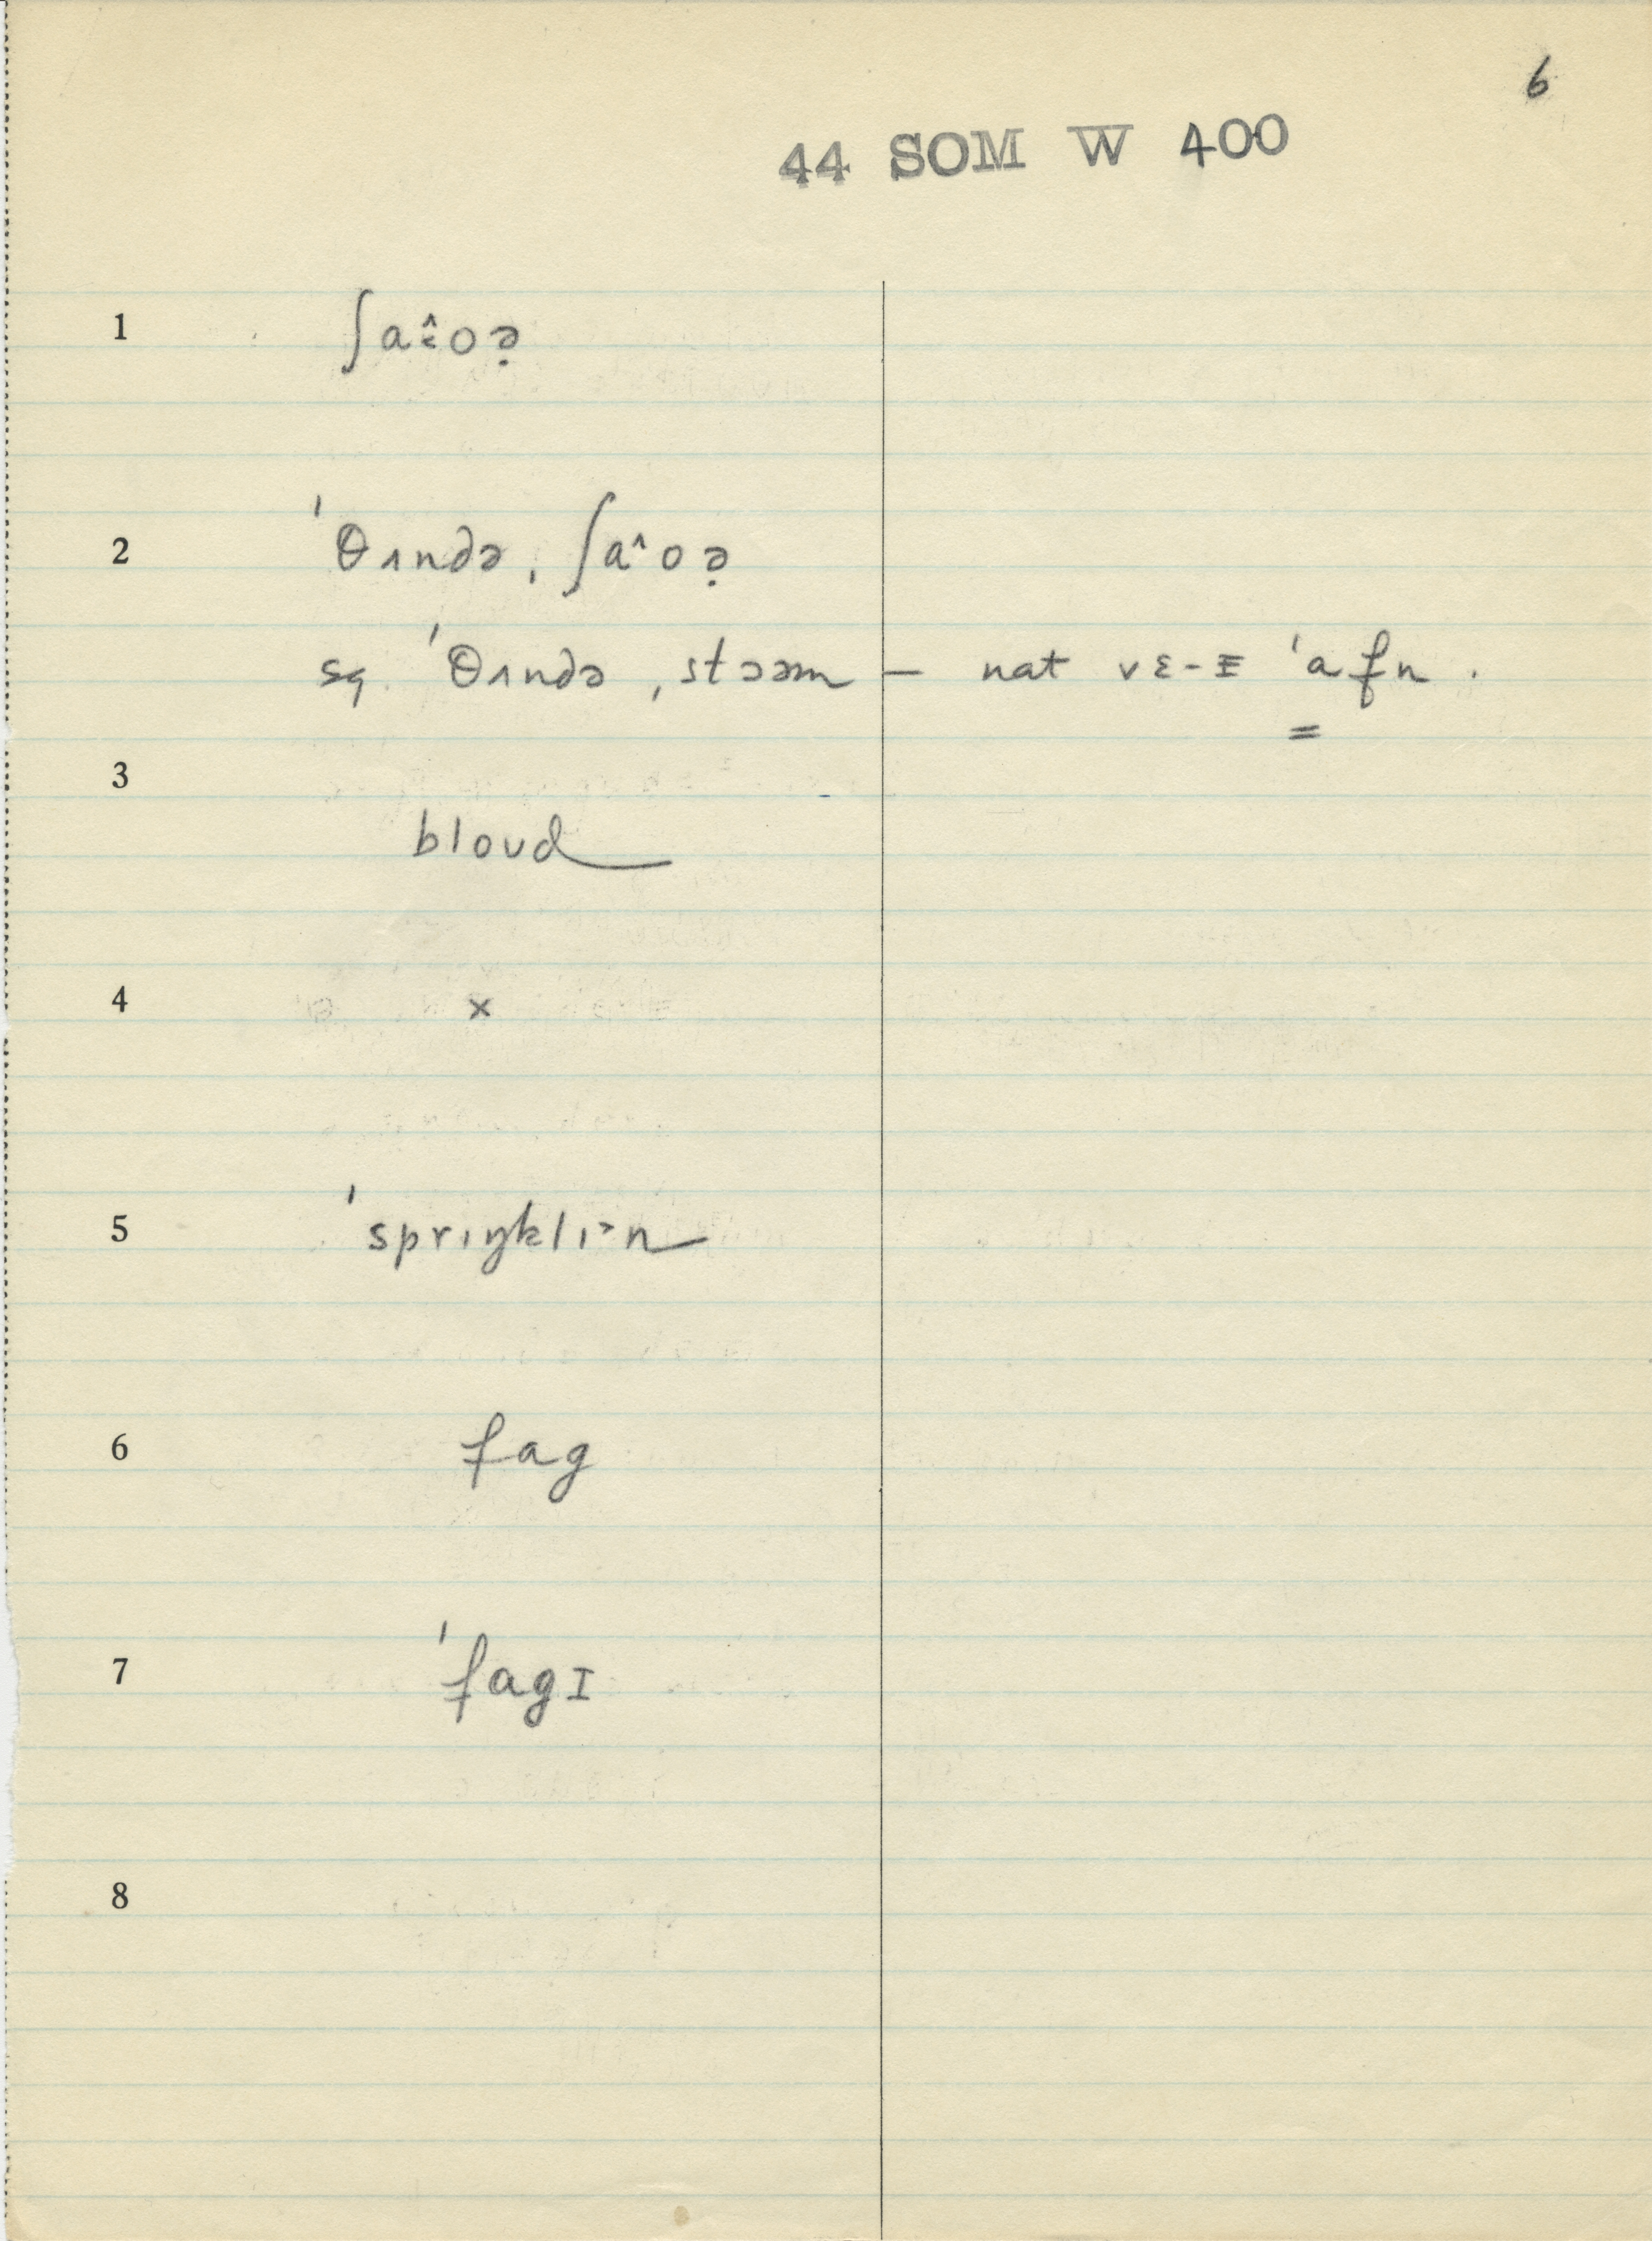 6
44 SOM W 400
1 ʃaˆ:oə̣
2 ˈθʌndə, ʃaˆoə̣
sq. ˈθʌndə, stɔəm — nat vɛ-ɪ ˈafn.
3 bloud
4 x
5 ˈsprɪŋklɪ˃n
6 fag
7 ˈfagɪ
8